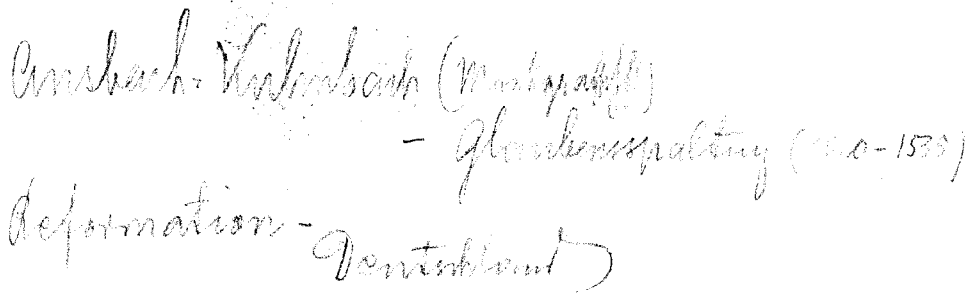 Ansbach-Kulmbach (Markgrafsch)
- Glaubensspaltung (1520-1535)
Reformation -
Deutschland